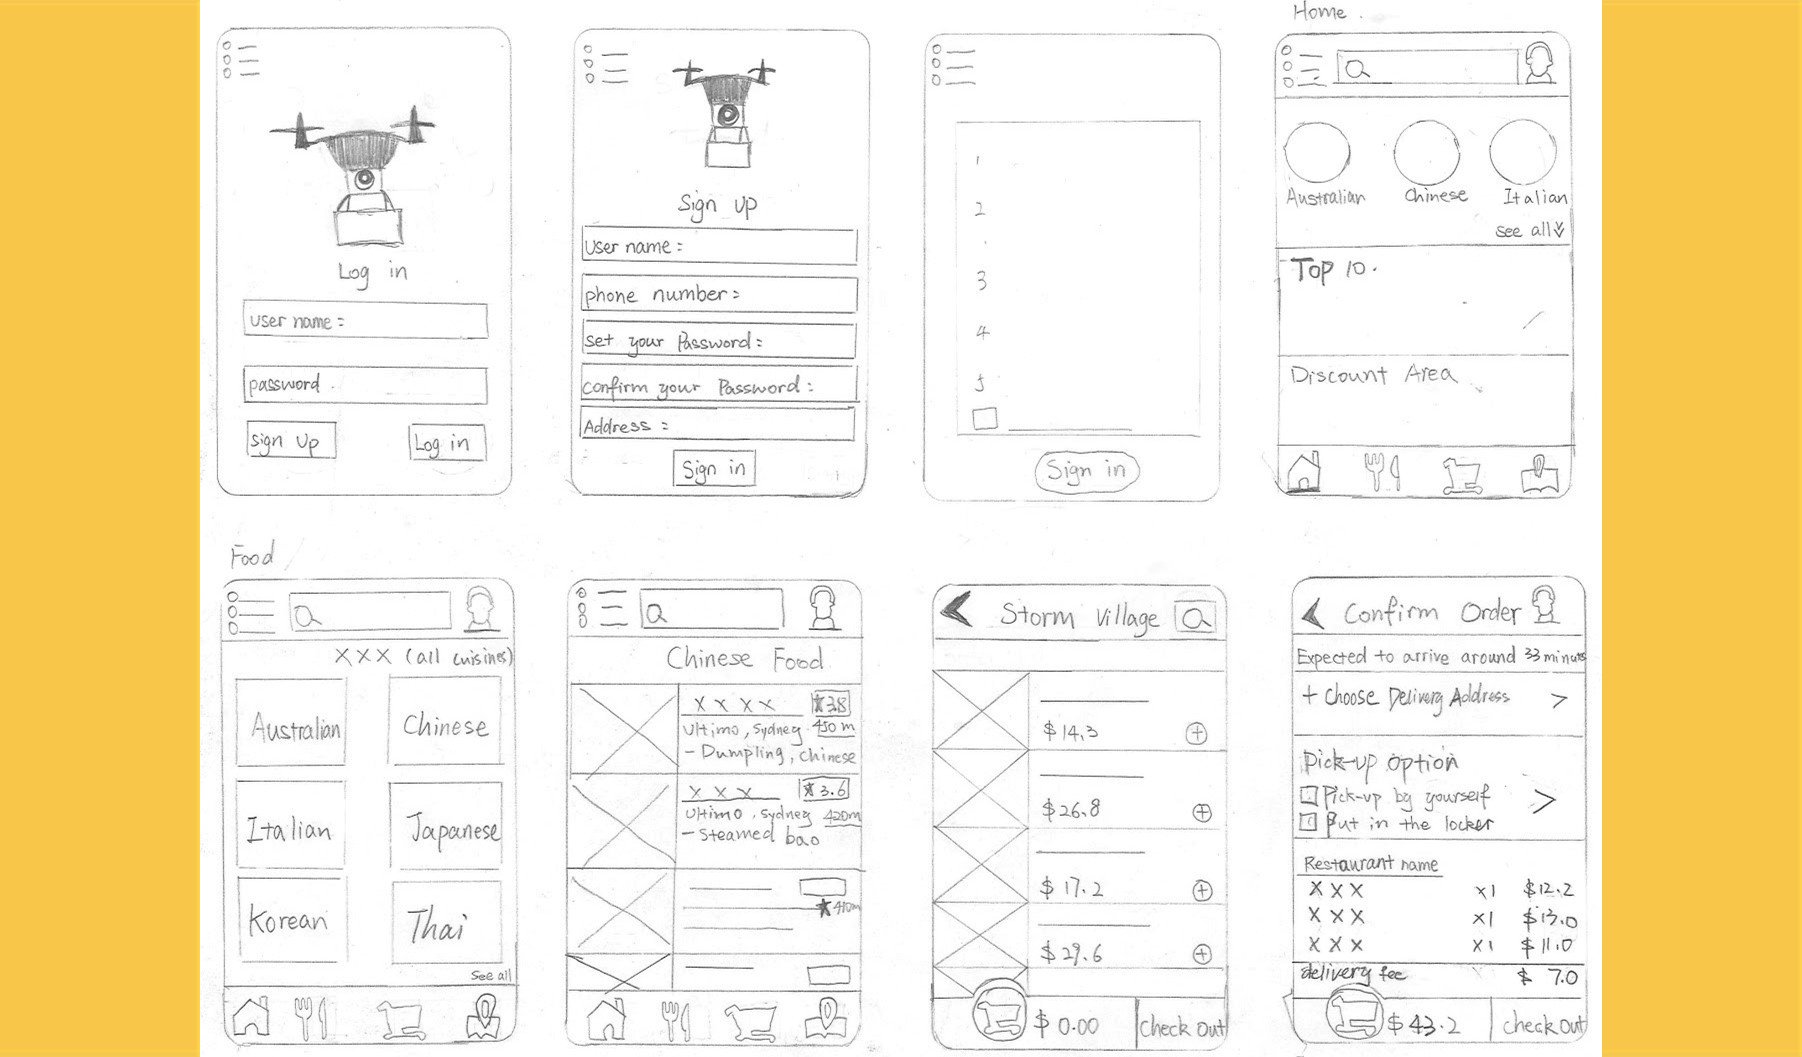 Log in
User name :
password .
Sign Up
Log in
Sign up
User name :
phone number :
set your Password :
confirm your Password :
Address :
Sign in
1
2
3
4
5
Sign in
Home .
Australian
Chinese
Italian
see all
Top 10.
Discount Area
Food
X X X (all cuisines)
Australian
Chinese
Italian
Japanese
Korean
Thai
see all
Chinese Food
X X X X ★3.8
Ultimo, Sydney 450 m
- Dumpling, chinese
X X X ★3.6
Ultimo, sydney 420m
- Steamed bao
★ 410m
Storm Village
$14.3
$26.8
$17.2
$29.6
$0.00
Check Out
Confirm Order
Expected to arrive around 33 minutes
+ Choose Delivery Address >
Pick-up option
Pick-up by yourself
Put in the locker
>
Restaurant name
X X X x1 $12.2
X X X x1 $13.0
X X X x1 $11.0
delivery fee $ 7.0
$43.2
check out